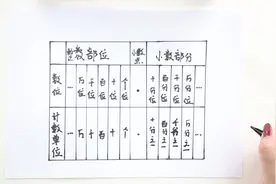 整数部位 小数点 小数部分
数位 … 万位 千位 百位 十位 个位 · 十分位 百分位 千分位 万分位 …
计数单位 … 万 千 百 十 个 · 十分之一 百分之一 千分之一 万分之一 …